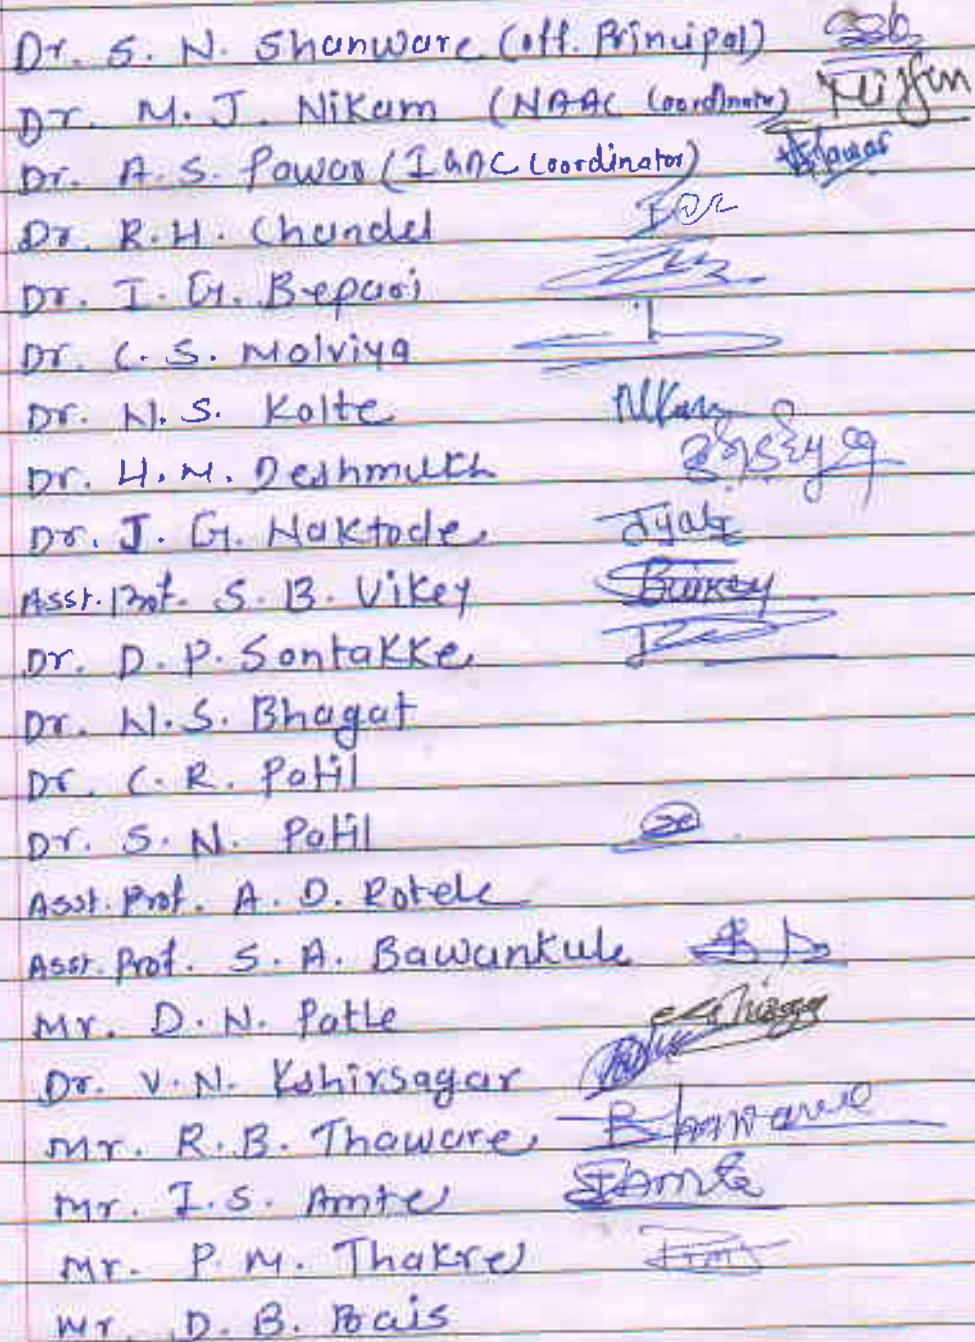 Dr. S. N. Shanware (off. Principal)
Dr. M. J. Nikam (NAAC Coordinator)
Dr. A. S. Pawar (IQAC Coordinator)
Dr. R. H. Chandel
Dr. I. G. Bepari
Dr. C. S. Malviya
Dr. N. S. Kolte
Dr. H. M. Deshmukh
Dr. J. G. Naktode
Asst. Prof. S. B. Vikey
Dr. D. P. Sontakke
Dr. N. S. Bhagat
Dr. C. R. Patil
Dr. S. N. Patil
Asst. Prof. A. D. Rotele
Asst. Prof. S. A. Bawankule
Mr. D. N. Patle
Dr. V. N. Kshirsagar
Mr. R. B. Thaware
Mr. I. S. Amte
Mr. P. M. Thakre
Mr. D. B. Bais